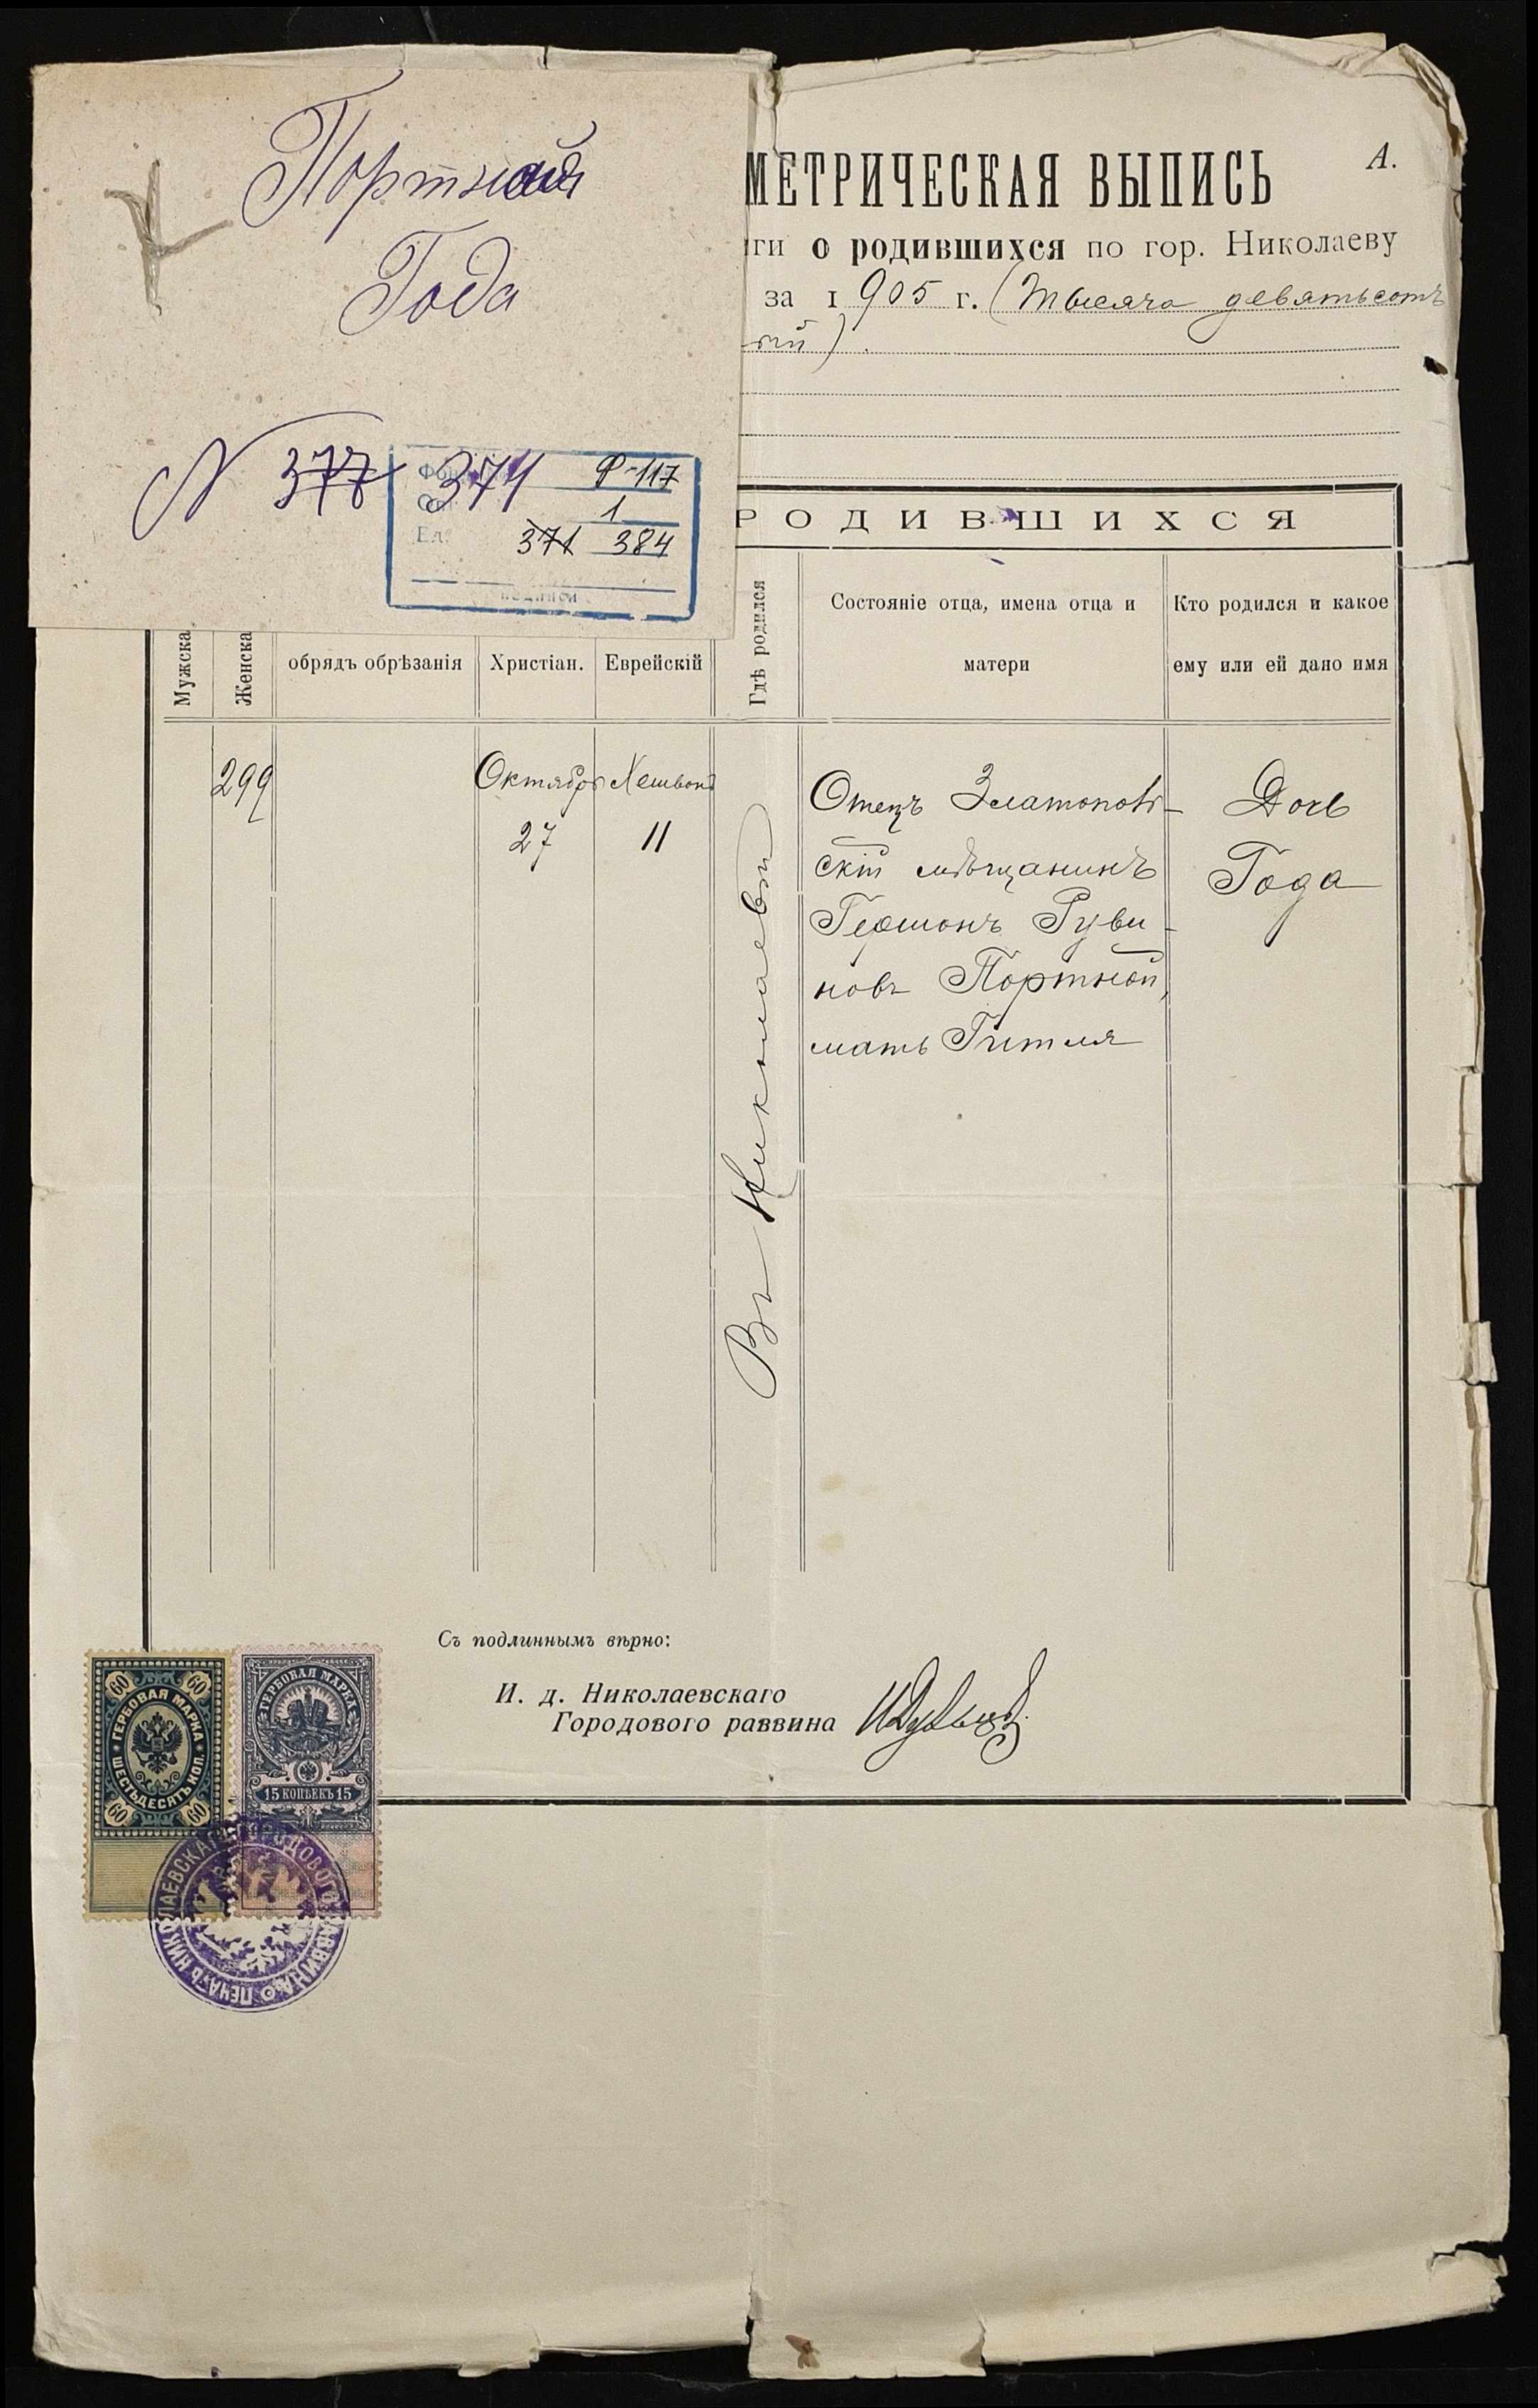 Портная
Года
N 377 374
Фонд Ф-117
Оп. 1
Ед. 371 384
подписи
МЕТРИЧЕСКАЯ ВЫПИСЬ
А.
ги о родившихся по гор. Николаеву
за 1905 г. (Тысяча девятьсотъ
тый)
РОДИВШИХСЯ
Мужска
Женска
обрядъ обрѣзанія
Христіан.
Еврейскій
Гдѣ родился
Состояніе отца, имена отца и
матери
Кто родился и какое
ему или ей дано имя
299
Октябрь
27
Хешвонъ
11
Въ Николаевѣ
Отецъ Златополь-
скій мѣщанинъ
Гершонъ Руви-
новъ Портной,
мать Гитля
Дочь
Года
Съ подлиннымъ вѣрно:
И. д. Николаевскаго
Городового раввина
60 60
ГЕРБОВАЯ МАРКА
ШЕСТЬДЕСЯТЬ КОП.
60 60
ГЕРБОВАЯ МАРКА
15 КОПѢЕКЪ 15
ПЕЧАТЬ НИКОЛАЕВСКАГО ГОРОДОВОГО РАВВИНА